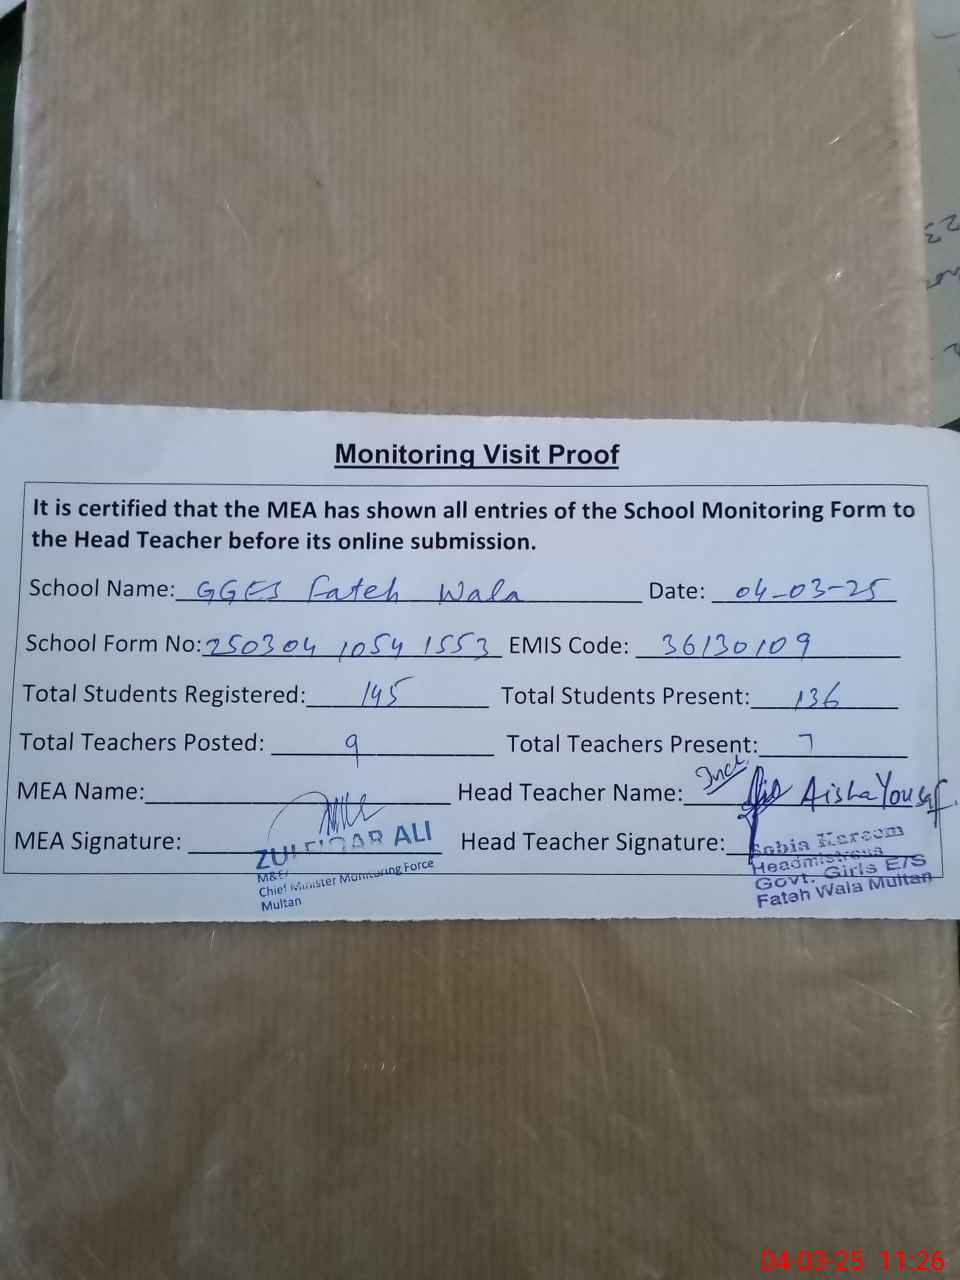 Monitoring Visit Proof
It is certified that the MEA has shown all entries of the School Monitoring Form to
the Head Teacher before its online submission.
School Name: GGES Fateh Wala Date: 04-03-25
School Form No: 250304 1054 1553 EMIS Code: 36130109
Total Students Registered: 145 Total Students Present: 136
Total Teachers Posted: 9 Total Teachers Present: 7
MEA Name: Head Teacher Name: Aisha Yousaf
MEA Signature: Head Teacher Signature:
ZULFIQAR ALI
Chief Minister Monitoring Force
Multan
Sobia Kareem
Headmistress
Govt. Girls E/S
Fateh Wala Multan
04-03-25 11:26